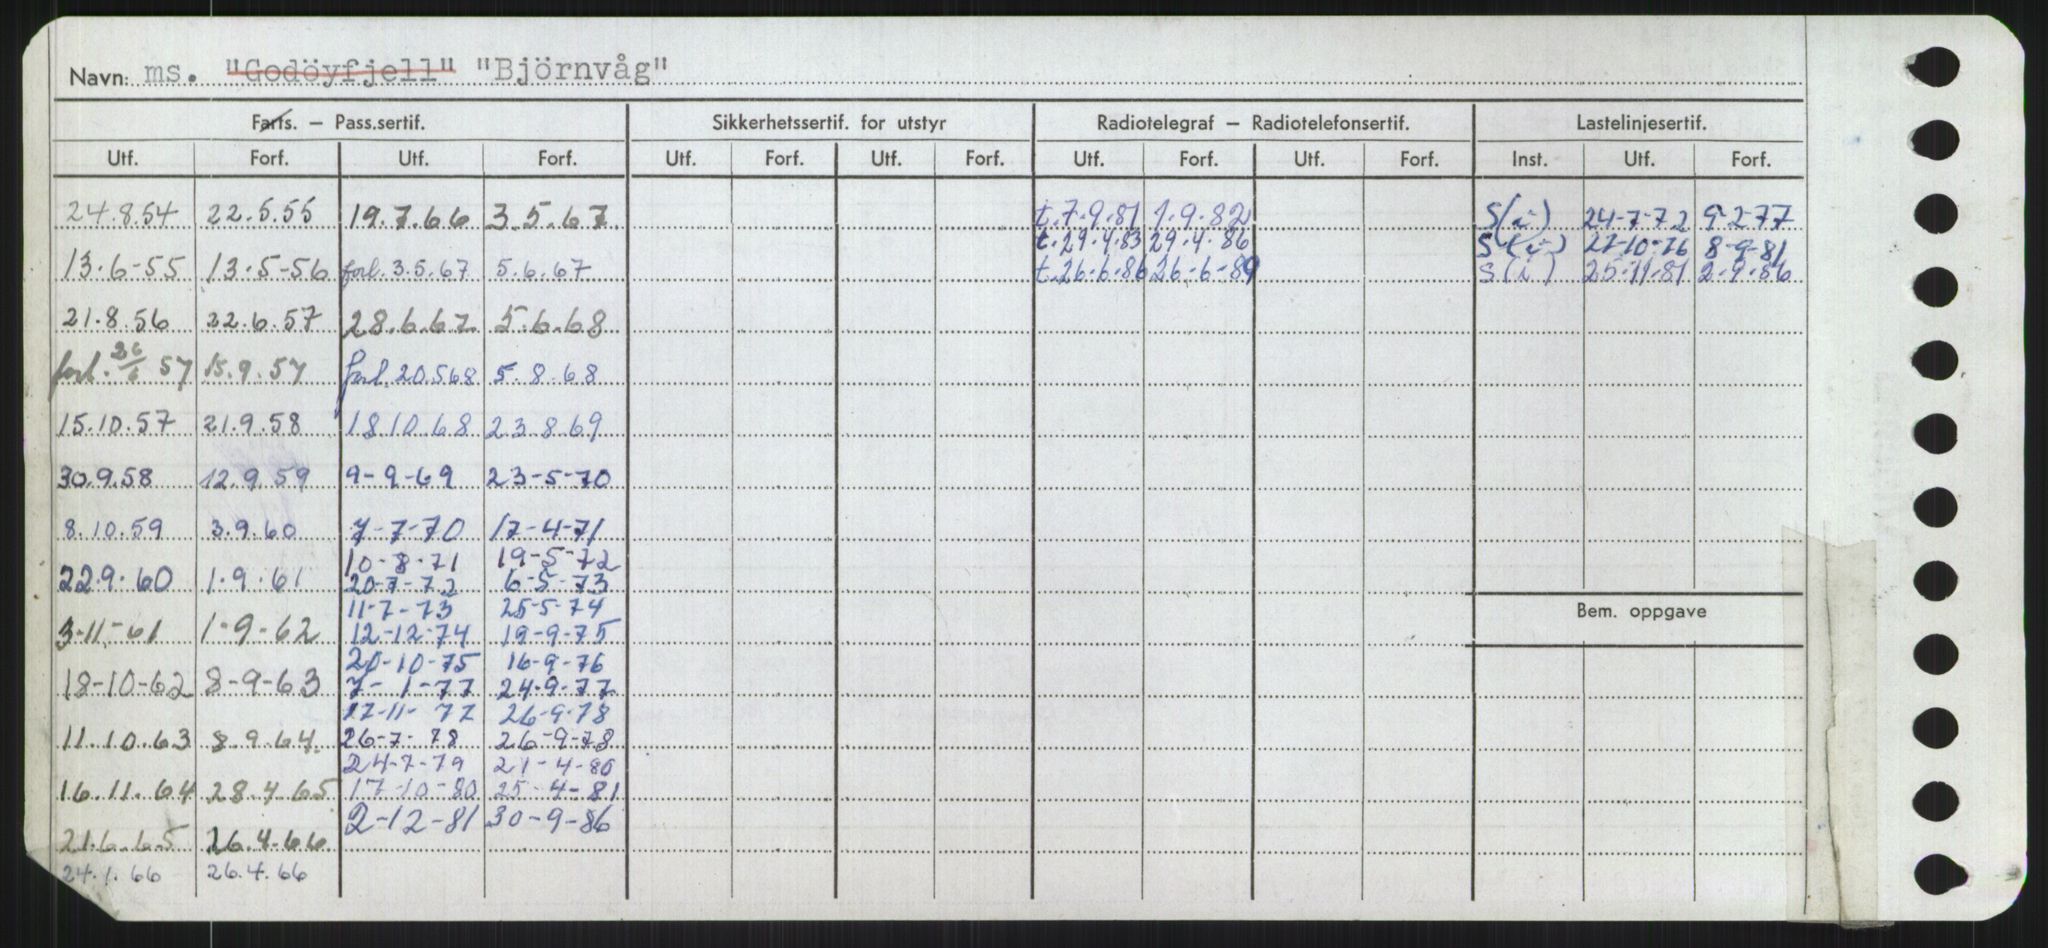 Navn: ms. "Godöyfjell" "Björnvåg"
Farts. – Pass.sertif. Sikkerhetssertif. for utstyr Radiotelegraf – Radiotelefonsertif. Lastelinjesertif.
Utf. Forf. Utf. Forf. Utf. Forf. Utf. Forf. Utf. Forf. Utf. Forf. Inst. Utf. Forf.
24.8.54 22.5.55 19.7.66 3.5.67 t.7.9.81 1.9.82 S(i) 24-7-72 9-2-77
t.29.4.83 29.4.86 S(i) 27-10-76 8-9-81
13.6-55 13.5-56 forl. 3.5.67 5.6.67 t.26.6.86 26-6-89 S(i) 25-11-81 2-9-86
21.8.56 22.6.57 28.6.67 5.6.68
forl. 26/6 57 15.9.57 forl. 20.5 68 5.8.68
15.10.57 21.9.58 18 10.68 23 8 69
30.9.58 12.9.59 9-9-69 23-5-70
8.10.59 3.9.60 7-7-70 17-4-71
10-8-71 19-5-72
22.9.60 1.9.61 20-7-72 6-5-73
11-7-73 25-5-74
3-11-61 1-9-62 12-12-74 19-9-75
20-10-75 16-9-76
18-10-62 8-9-63 7-1-77 24-9-77
17-11-77 26-9-78
11.10.63 8.9.64. 26-7-78 26-9-78
24-7-79 21-4-80
16.11.64 28.4.65 17-10-80 25-4-81
2-12-81 30-9-86
21.6.65 26.4.66
24.1.66 26.4.66
Bem. oppgave